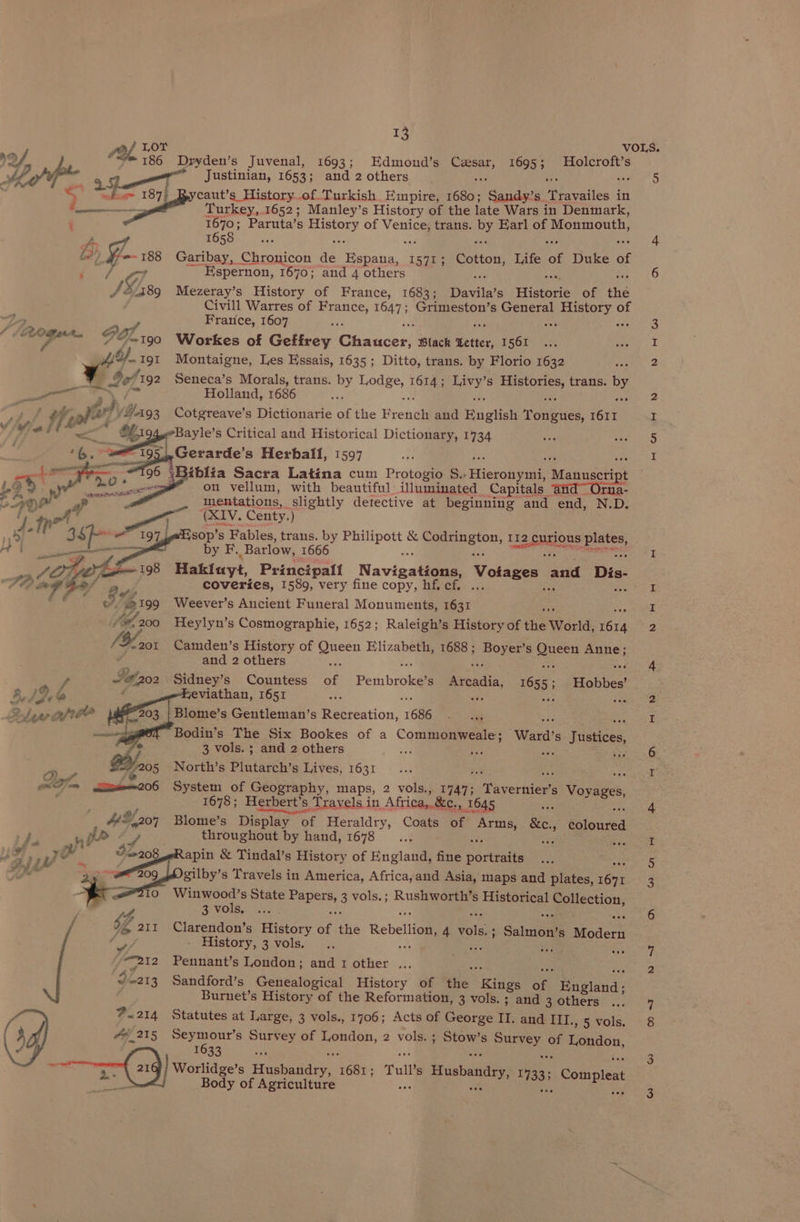 13
LOT VOLS.
186 Dryden's Juvenal, 1693; Edmond's Cæsar, 1695; Holcroft's
Justinian, 1653; and 2 others ... ... ... 5
187 Rycaut's History of Turkish Empire, 1680; Sandy's Travailes in
Turkey, 1652; Manley's History of the late Wars in Denmark,
1670; Paruta's History of Venice, trans. by Earl of Monmouth,
1658 ... ... ... ... ... ... 4
188 Garibay, Chronicon de Espana, 1571; Cotton, Life of Duke of
Espernon, 1670; and 4 others ... ... ... 6
189 Mezeray's History of France, 1683; Davila's Historie of the
Civill Warres of France, 1647; Grimeston's General History of
France, 1607 ... ... ... ... ... 3
190 Workes of Geffrey Chaucer, Black Letter, 1561 ... ... 1
191 Montaigne, Les Essais, 1635; Ditto, trans. by Florio 1632 ... 2
192 Seneca's Morals, trans. by Lodge, 1614; Livy's Histories, trans. by
Holland, 1686 ... ... ... ... ... 2
193 Cotgreave's Dictionarie of the French and English Tongues, 1611 1
194 Bayle's Critical and Historical Dictionary, 1734 ... ... 5
195 Gerarde's Herball, 1597 ... ... ... ... 1
196 Biblia Sacra Latina cum Protogio S. Hieronymi, Manuscript
on vellum, with beautiful illuminated Capitals and Orna-
mentations, slightly defective at beginning and end, N.D.
(XIV. Centy.)
197 Æsop's Fables, trans. by Philipott & Codrington, 112 curious plates,
by F. Barlow, 1666 ... ... ... ... 1
198 Hakluyt, Principall Navigations, Voiages and Dis-
coveries, 1589, very fine copy, hf. cf. ... ... ... 1
199 Weever's Ancient Funeral Monuments, 1631 ... ... 1
200 Heylyn's Cosmographie, 1652; Raleigh's History of the World, 1614 2
201 Camden's History of Queen Elizabeth, 1688; Boyer's Queen Anne;
and 2 others ... ... ... ... ... 4
202 Sidney's Countess of Pembroke's Arcadia, 1655; Hobbes'
Leviathan, 1651 ... ... ... ... ... 2
203 Blome's Gentleman's Recreation, 1686 ... ... ... 1
Bodin's The Six Bookes of a Commonweale; Ward's Justices,
3 vols.; and 2 others ... ... ... ... 6
205 North's Plutarch's Lives, 1631 ... ... ... ... 1
206 System of Geography, maps, 2 vols., 1747; Tavernier's Voyages,
1678; Herbert's Travels in Africa, &c., 1645 ... ... 4
207 Blome's Display of Heraldry, Coats of Arms, &c., coloured
throughout by hand, 1678 ... ... ... ... 1
208 Rapin & Tindal's History of England, fine portraits ... ... 5
209 Ogilby's Travels in America, Africa, and Asia, maps and plates, 1671 3
210 Winwood's State Papers, 3 vols.; Rushworth's Historical Collection,
3 vols. ... ... ... ... ... ... 6
211 Clarendon's History of the Rebellion, 4 vols.; Salmon's Modern
History, 3 vols. ... ... ... ... ... 7
212 Pennant's London; and 1 other ... ... ... ... 2
213 Sandford's Genealogical History of the Kings of England;
Burnet's History of the Reformation, 3 vols.; and 3 others ... 7
214 Statutes at Large, 3 vols., 1706; Acts of George II. and III., 5 vols. 8
215 Seymour's Survey of London, 2 vols.; Stow's Survey of London,
1633 ... ... ... ... ... ... 3
216 Worlidge's Husbandry, 1681; Tull's Husbandry, 1733; Compleat
Body of Agriculture ... ... ... ... 3